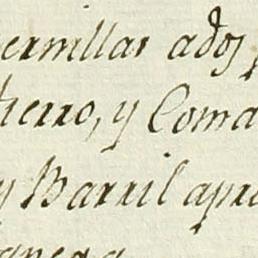 ernillas ados
hierro, y Coma
y Barril apre